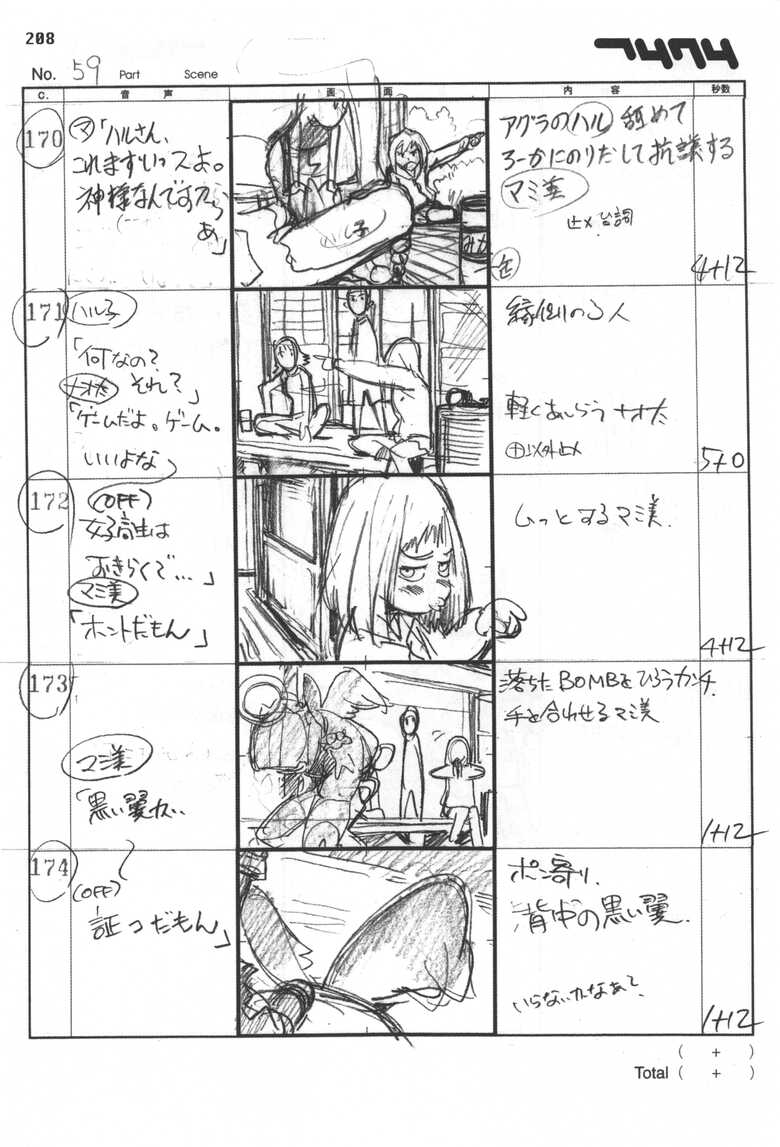 208
フリクリ
No. 59 Part Scene
C. 音声 画面 内容 秒数
170
マ「ハルさん、
これまずいっスよ。
神様なんですから
ぁ」
アグラのハル 舐めて
ろーかにのりだして抗議する
マミ美
止メ、台詞
4+12
171
ハル子
「何なの?
それ?」
ナオ太
「ゲームだよ。ゲーム。
いいよな
縁側の3人
軽くあしらう ナオ太
5+0
172
(OFF)
女子高生は
おきらくで…」
マミ美
「ホントだもん」
ムっとするマミ美.
4+12
173
マミ美
「黒い翼が、、
落ちたBOMBをひろうカンチ.
手を合わせるマミ美
1+12
174
(OFF)
証コだもん」
ポン寄り.
背中の黒い翼.
いらないかなぁ?
1+12
( + )
Total ( + )